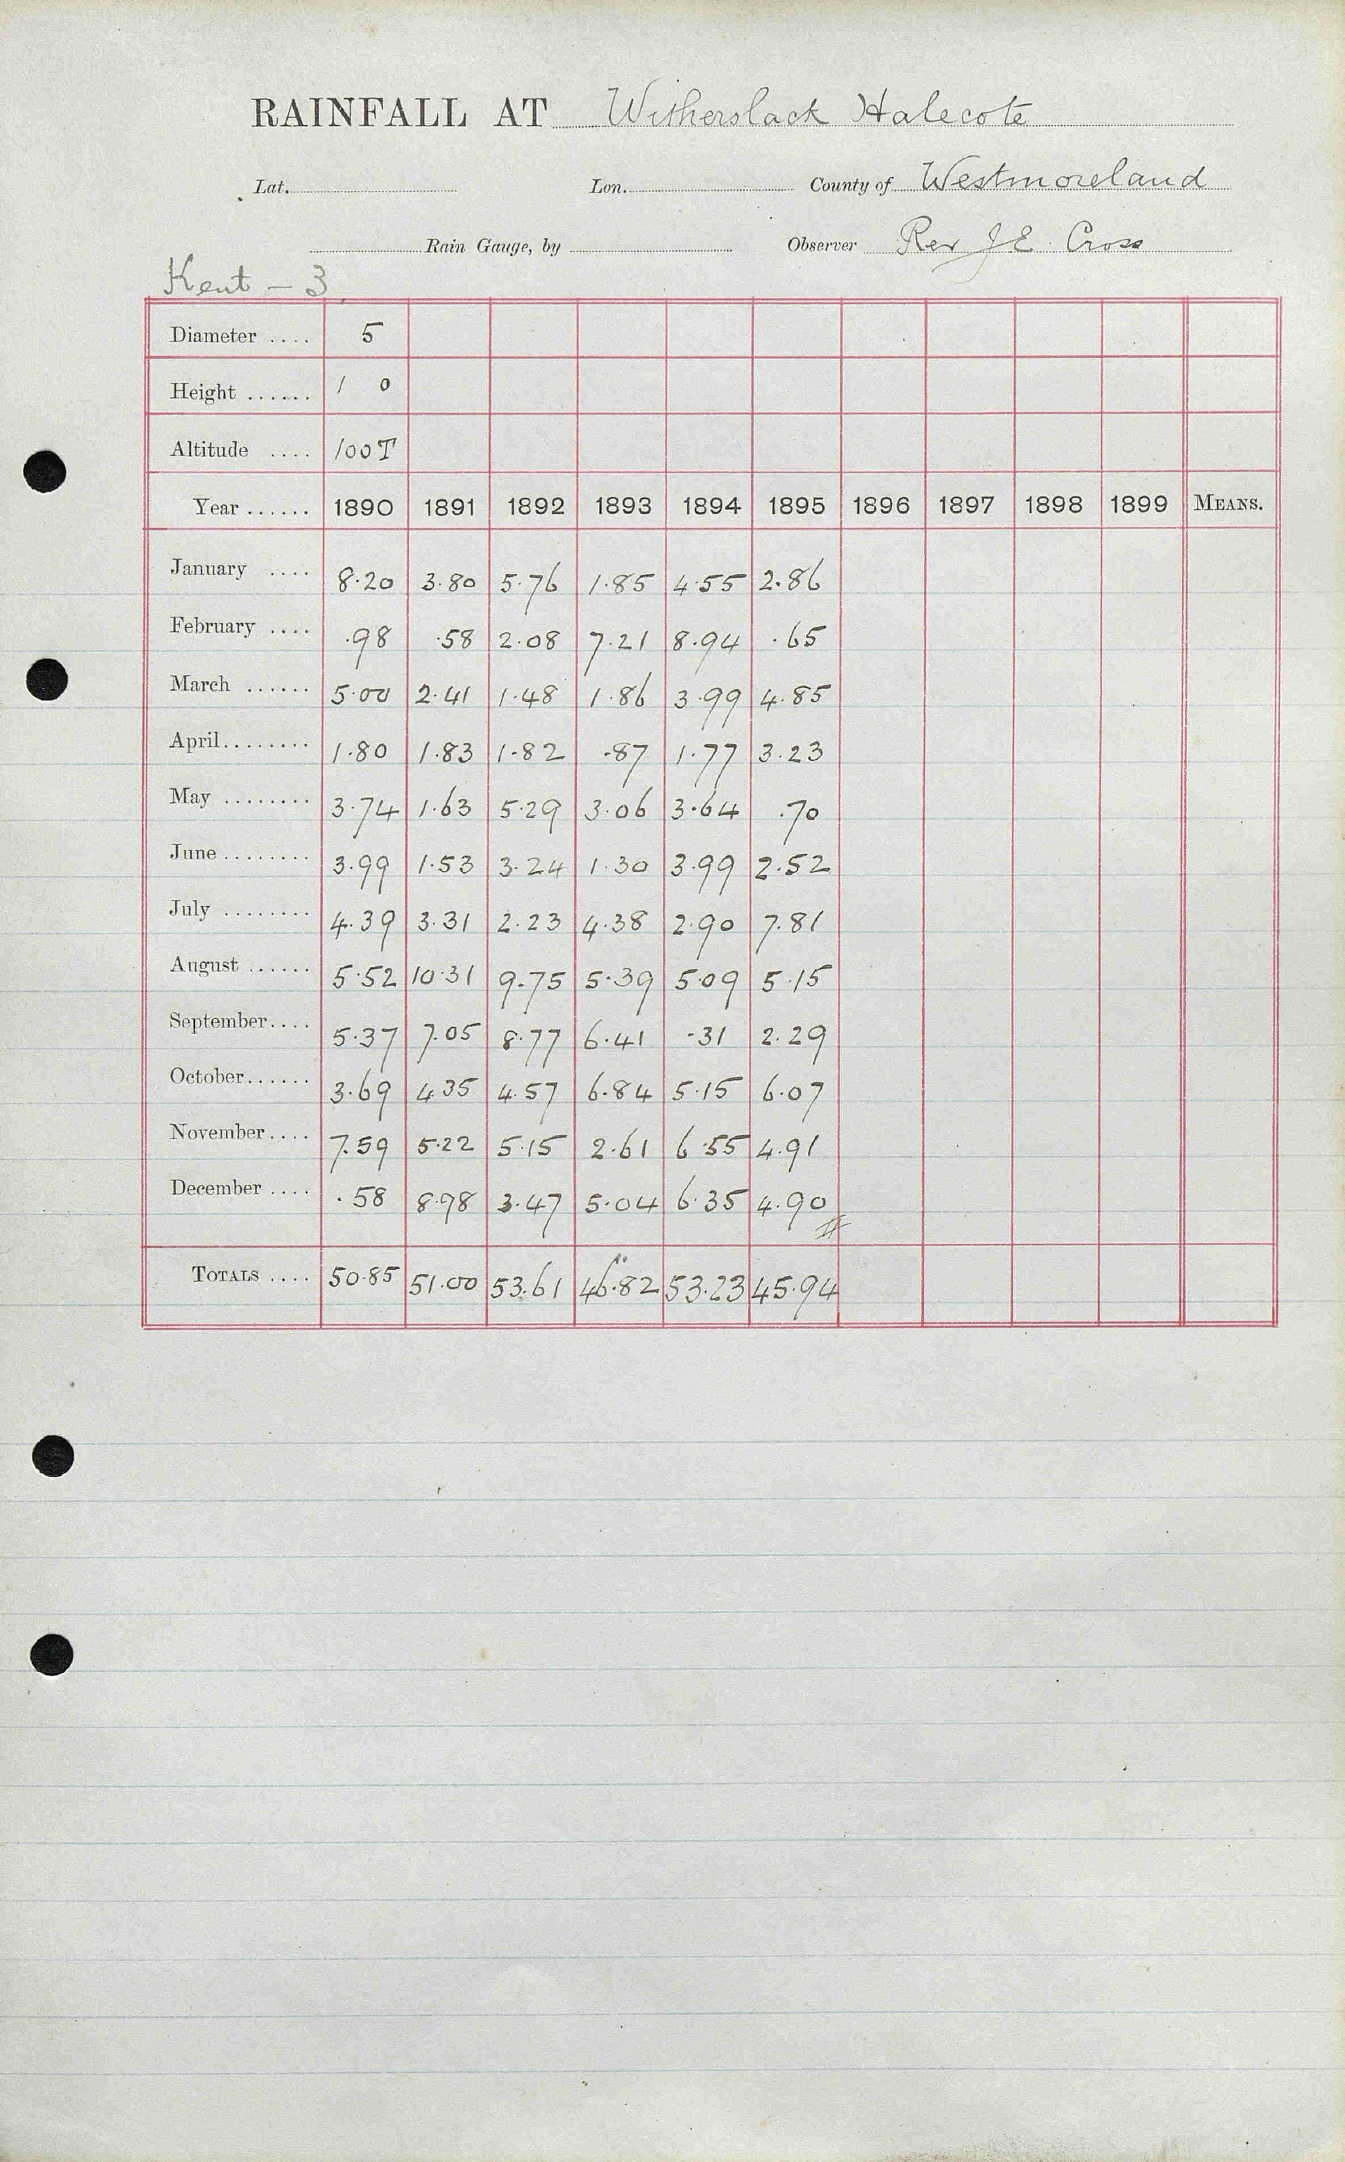 RAINFALL AT Witherslack Halecote
Lat. Lon. County of Westmoreland
Rain Gauge, by Observer Rev J E Cross
Kent - 3
Diameter .... 5
Height ...... 1 0
Altitude .... 100T
Year ...... 1890 1891 1892 1893 1894 1895 1896 1897 1898 1899 MEANS.
January .... 8.20 3.80 5.76 1.85 4.55 2.86
February .... .98 .58 2.08 7.21 8.94 .65
March ...... 5.00 2.41 1.48 1.86 3.99 4.85
April........ 1.80 1.83 1.82 .87 1.77 3.23
May ........ 3.74 1.63 5.29 3.06 3.64 .70
June ........ 3.99 1.53 3.24 1.30 3.99 2.52
July ........ 4.39 3.31 2.23 4.38 2.90 7.81
August ...... 5.52 10.31 9.75 5.39 5.09 5.15
September.... 5.37 7.05 8.77 6.41 .31 2.29
October...... 3.69 4.35 4.57 6.84 5.15 6.07
November.... 7.59 5.22 5.15 2.61 6.55 4.91
December .... .58 8.98 3.47 5.04 6.35 4.90
TOTALS .... 50.85 51.00 53.61 46.82 53.23 45.94